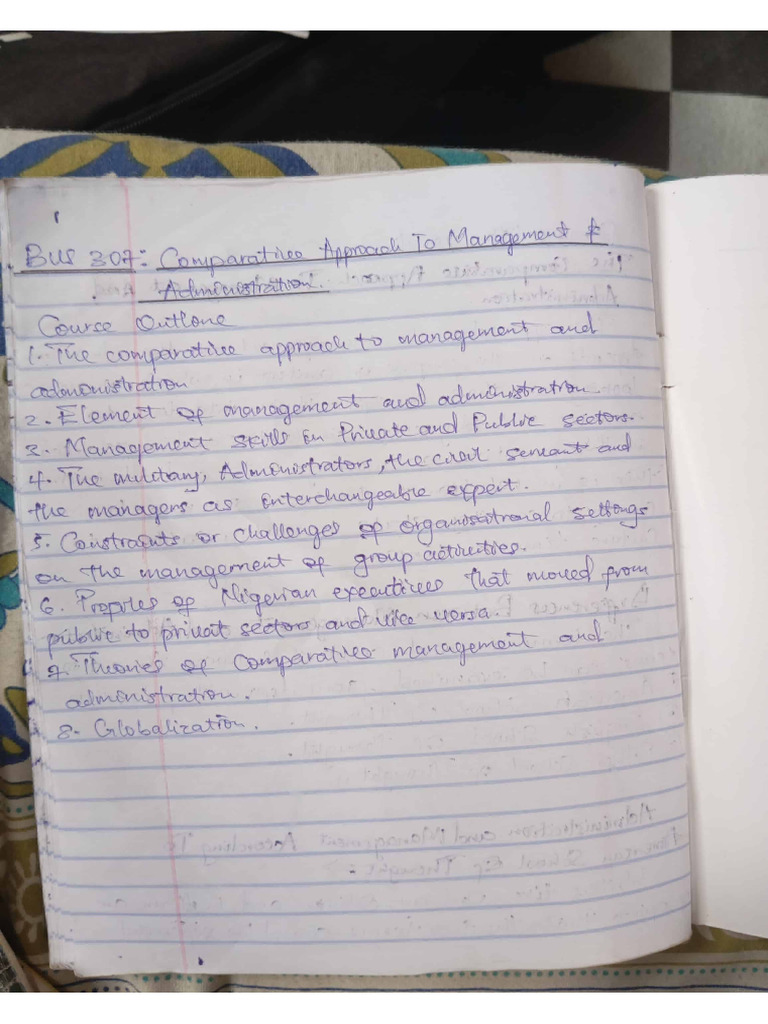 1
BUS 307: Comparative Approach To Management &
Administration.
Course Outline
1. The comparative approach to management and
administration
2. Element of management and administration
3. Management skills in Private and Public sectors.
4. The military, Administrators, the civil servant and
the managers as interchangeable expert.
5. Constraints or challenges of organisational settings
on the management of group activities.
6. Profiles of Nigerian executives that moved from
public to privat sectors and vice versa.
7. Theories of comparative management and
administration.
8. Globalization.